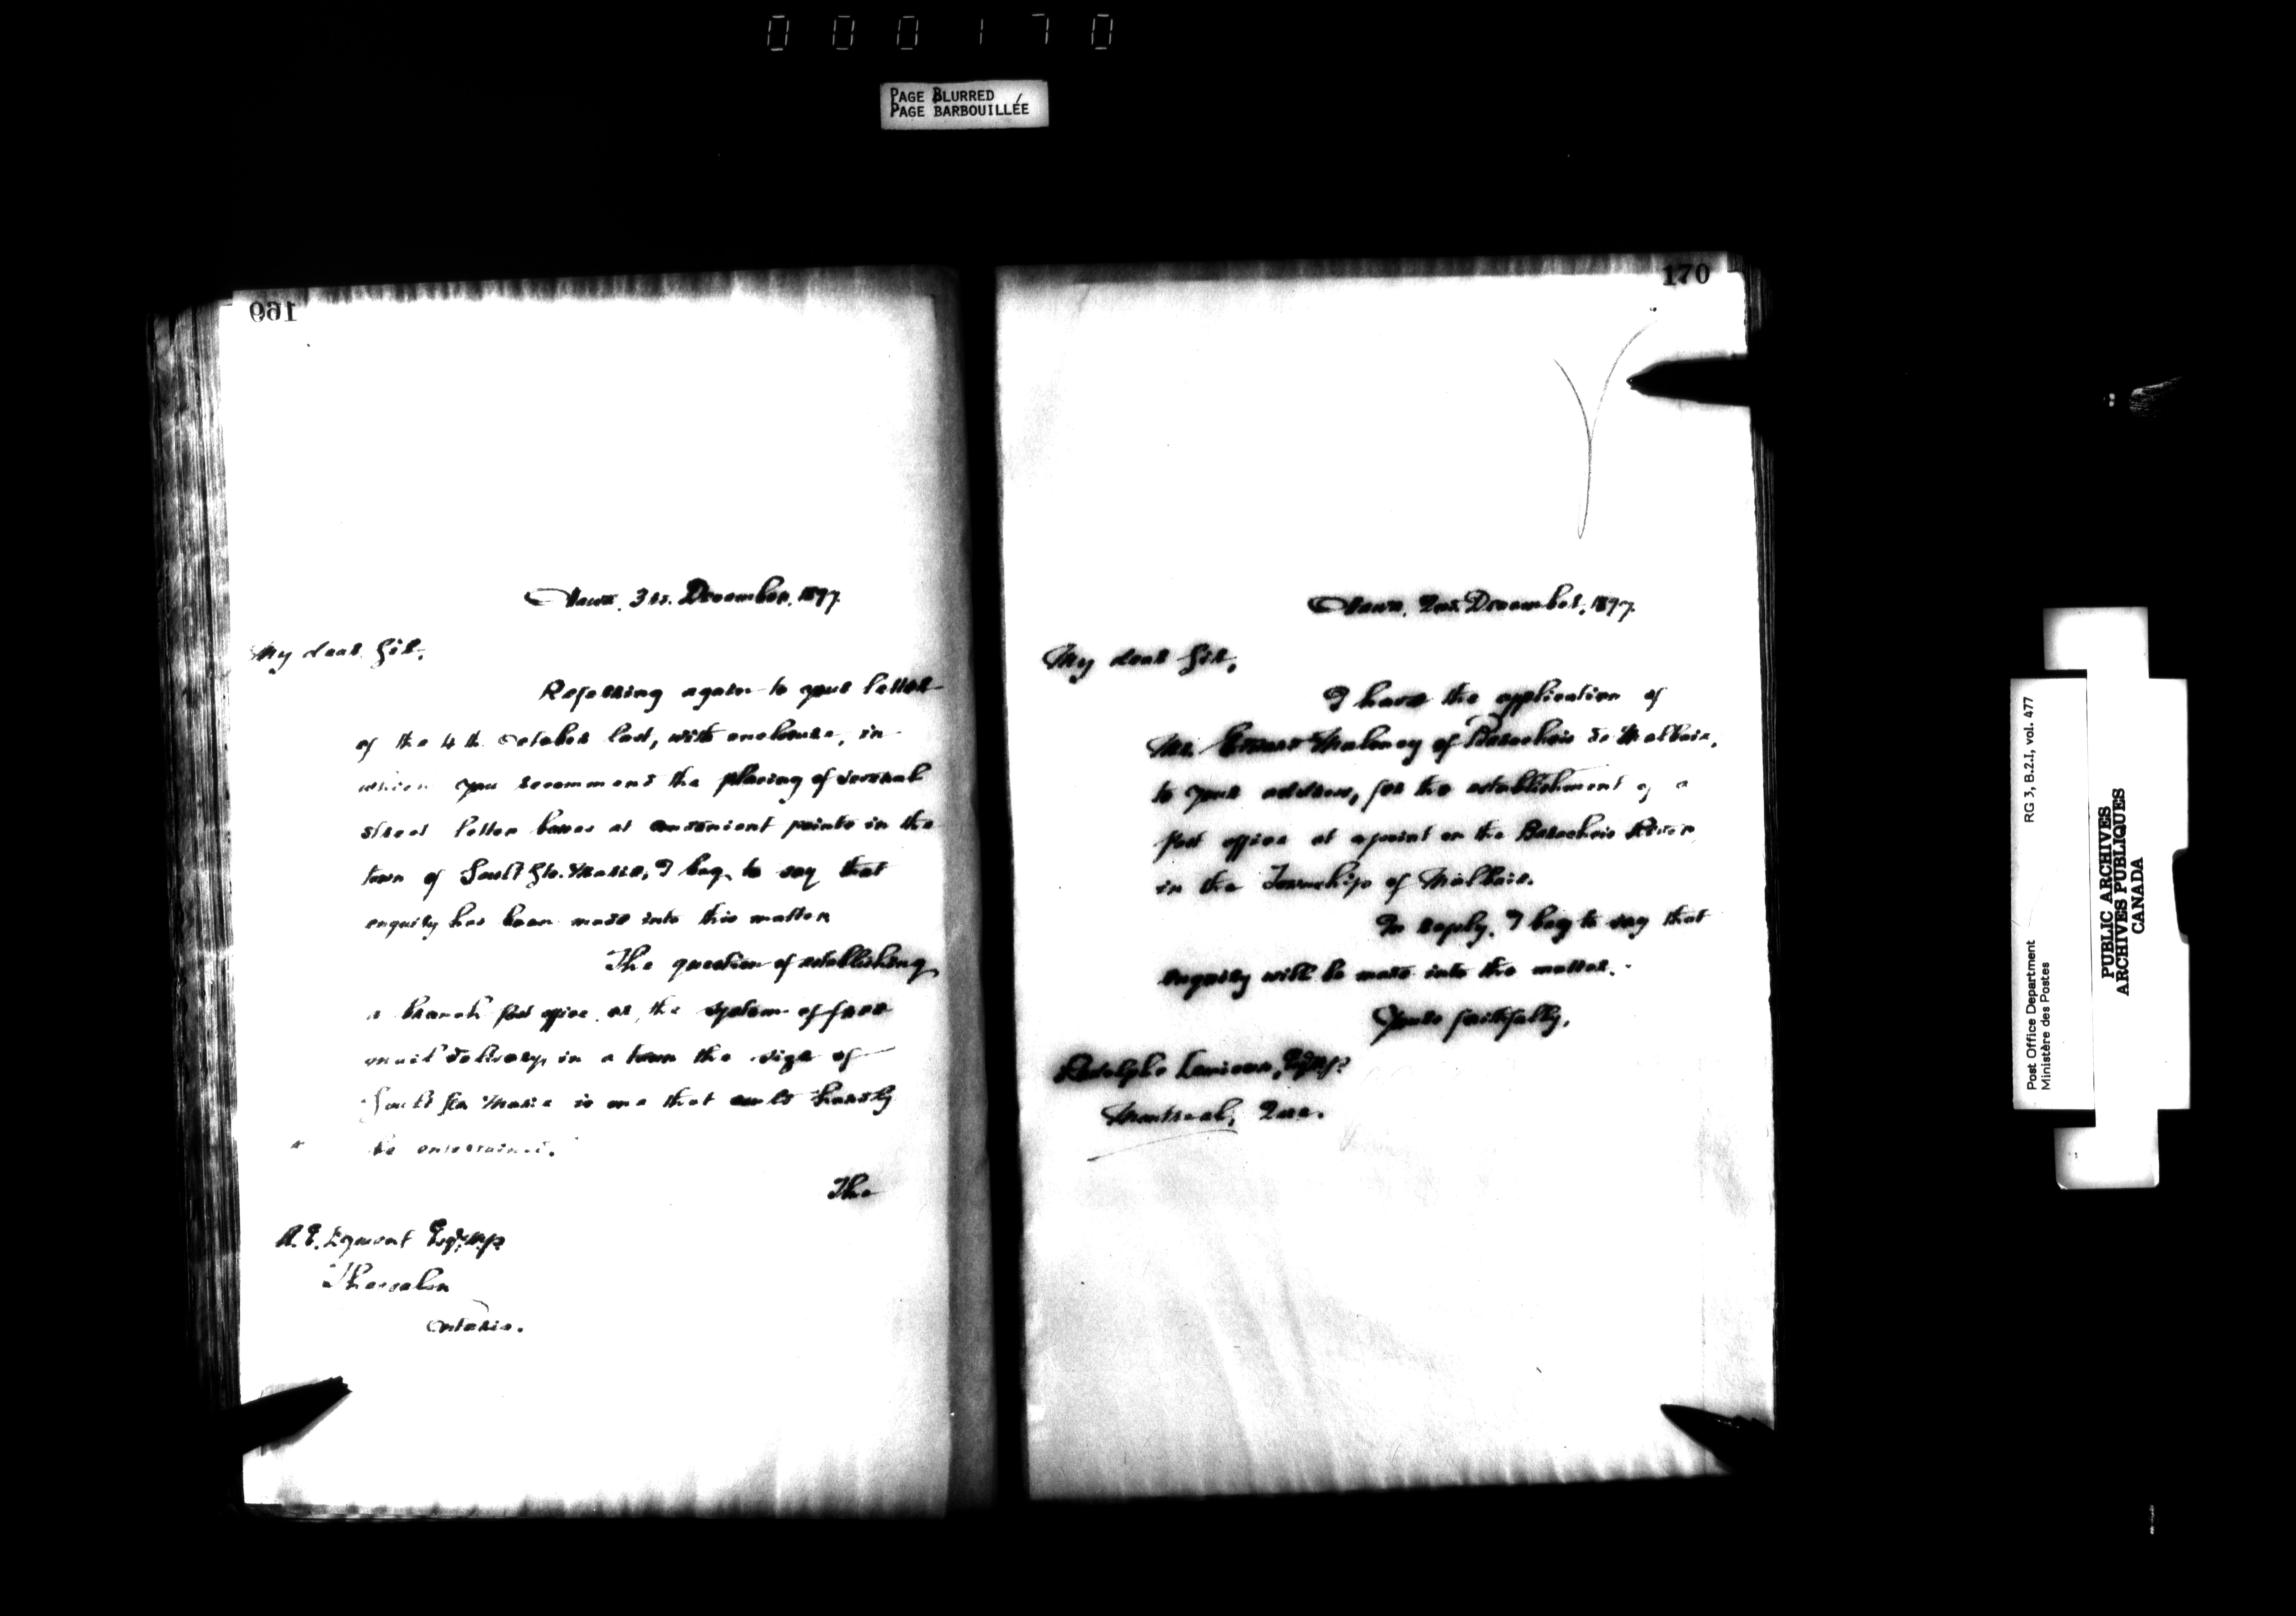 000170
PAGE BLURRED
PAGE BARBOUILLÉE
169
Ottawa, 3rd December, 1897.
My dear Sir,
Referring again to your letter
of the 4th October last, with enclosure, in
which you recommend the placing of several
street letter boxes at convenient points in the
town of Sault Ste. Marie, I beg to say that
enquiry has been made into this matter
The question of establishing
a branch post office or the system of free
mail delivery in a town the size of
Sault Ste Marie is one that could hardly
be entertained.
The
A. E. Esqr, M.P.
Thessalon
Ontario.
170
Ottawa, 2nd December, 1897.
My dear Sir,
I have the application of
Mr. Edward Maloney of Barachois de Malbaie,
to your address, for the establishment of a
post office at a point on the Barachois River
in the Township of Malbaie.
In reply, I beg to say that
enquiry will be made into the matter.
Yours faithfully,
Rodolphe Lemieux, Esq. M.P.
Montreal, Que.
RG 3, B.2.I, vol. 477
Post Office Department
Ministère des Postes
PUBLIC ARCHIVES
ARCHIVES PUBLIQUES
CANADA